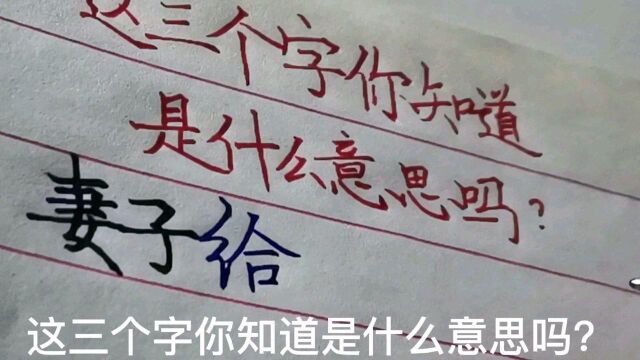 这三个字你知道
是什么意思吗?
妻子给
这三个字你知道是什么意思吗?